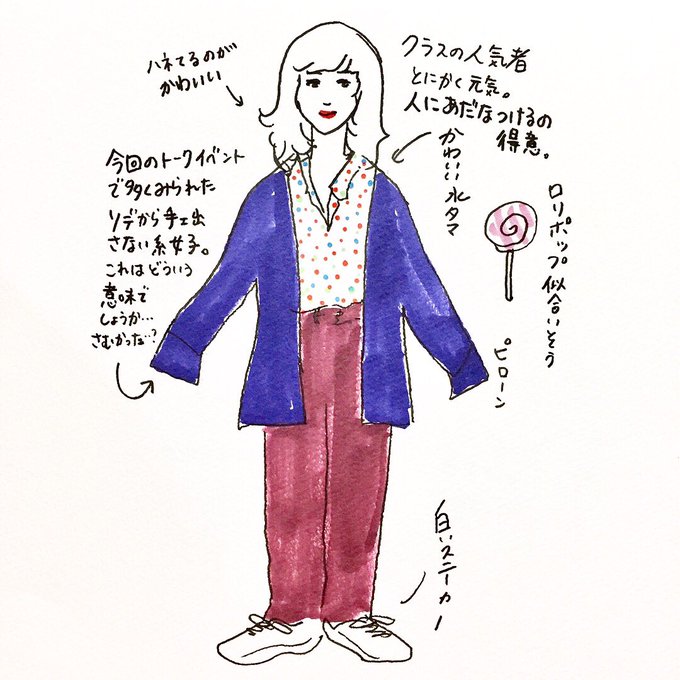 ハネてるのが
かわいい
クラスの人気者
とにかく元気。
人にあだなつけるの
得意。
かわいい水タマ
今回のトークイベント
で多くみられた
ソデから手を出
さない系女子。
これはどういう
意味で
しょうか…
さむかった…?
ロリポップ似合いそう
ピローン
白いスニーカー